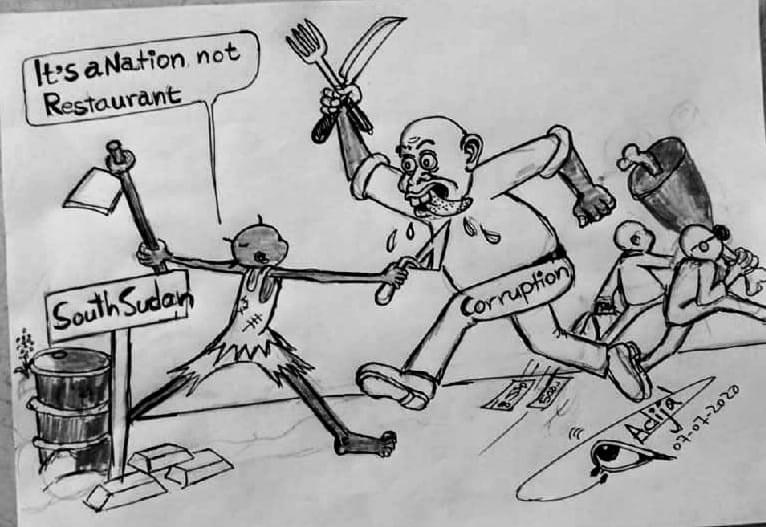 It's a Nation not
Restaurant
South Sudan
Corruption
Adija
07-07-2020